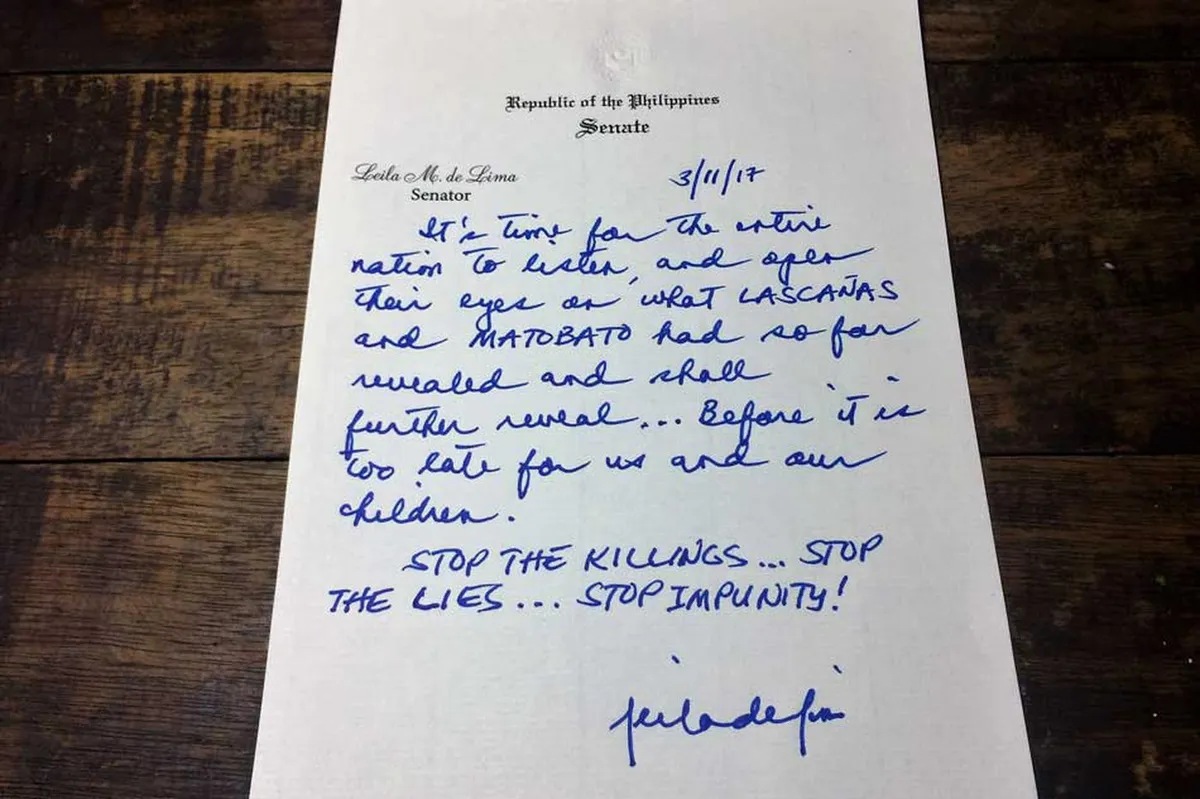 Republic of the Philippines
Senate
Leila M. de Lima
Senator
3/11/17
It's time for the entire
nation to listen, and open
their eyes on what LASCAÑAS
and MATOBATO had so far
revealed and shall
further reveal... Before it is
too late for us and our
children.
STOP THE KILLINGS... STOP
THE LIES... STOP IMPUNITY!
leiladelima